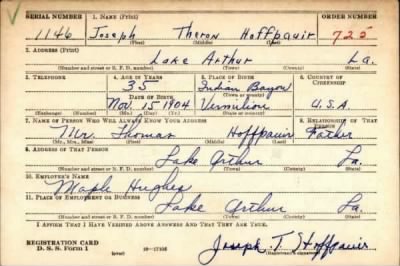 SERIAL NUMBER 1. NAME (Print) ORDER NUMBER
1146 Joseph Theron Hoffpauir 725
(First) (Middle) (Last)
2. ADDRESS (Print)
Lake Arthur La.
(Number and street or R. F. D. number) (Town) (County) (State)
3. TELEPHONE 4. AGE IN YEARS 5. PLACE OF BIRTH 6. COUNTRY OF CITIZENSHIP
35 Indian Bayou
DATE OF BIRTH (Town or county)
Nov. 15 1904 Vermilion U.S.A.
(Exchange) (Number) (Mo.) (Day) (Yr.) (State or country)
7. NAME OF PERSON WHO WILL ALWAYS KNOW YOUR ADDRESS 8. RELATIONSHIP OF THAT PERSON
Mr. Thomas Hoffpauir Father
(Mr., Mrs., Miss) (First) (Middle) (Last)
9. ADDRESS OF THAT PERSON
Lake Arthur La.
(Number and street or R. F. D. number) (Town) (County) (State)
10. EMPLOYER'S NAME
Maple Hughes
11. PLACE OF EMPLOYMENT OR BUSINESS
Lake Arthur La.
(Number and street or R. F. D. number) (Town) (County) (State)
I AFFIRM THAT I HAVE VERIFIED ABOVE ANSWERS AND THAT THEY ARE TRUE.
REGISTRATION CARD
D. S. S. Form 1 16—17105 Joseph T. Hoffpauir
(Registrant's signature)